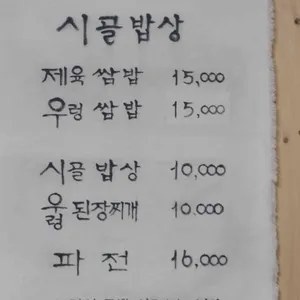 시골밥상
제육쌈밥 15,000
우렁쌈밥 15,000
시골밥상 10,000
우렁된장찌개 10.000
파전 16,000